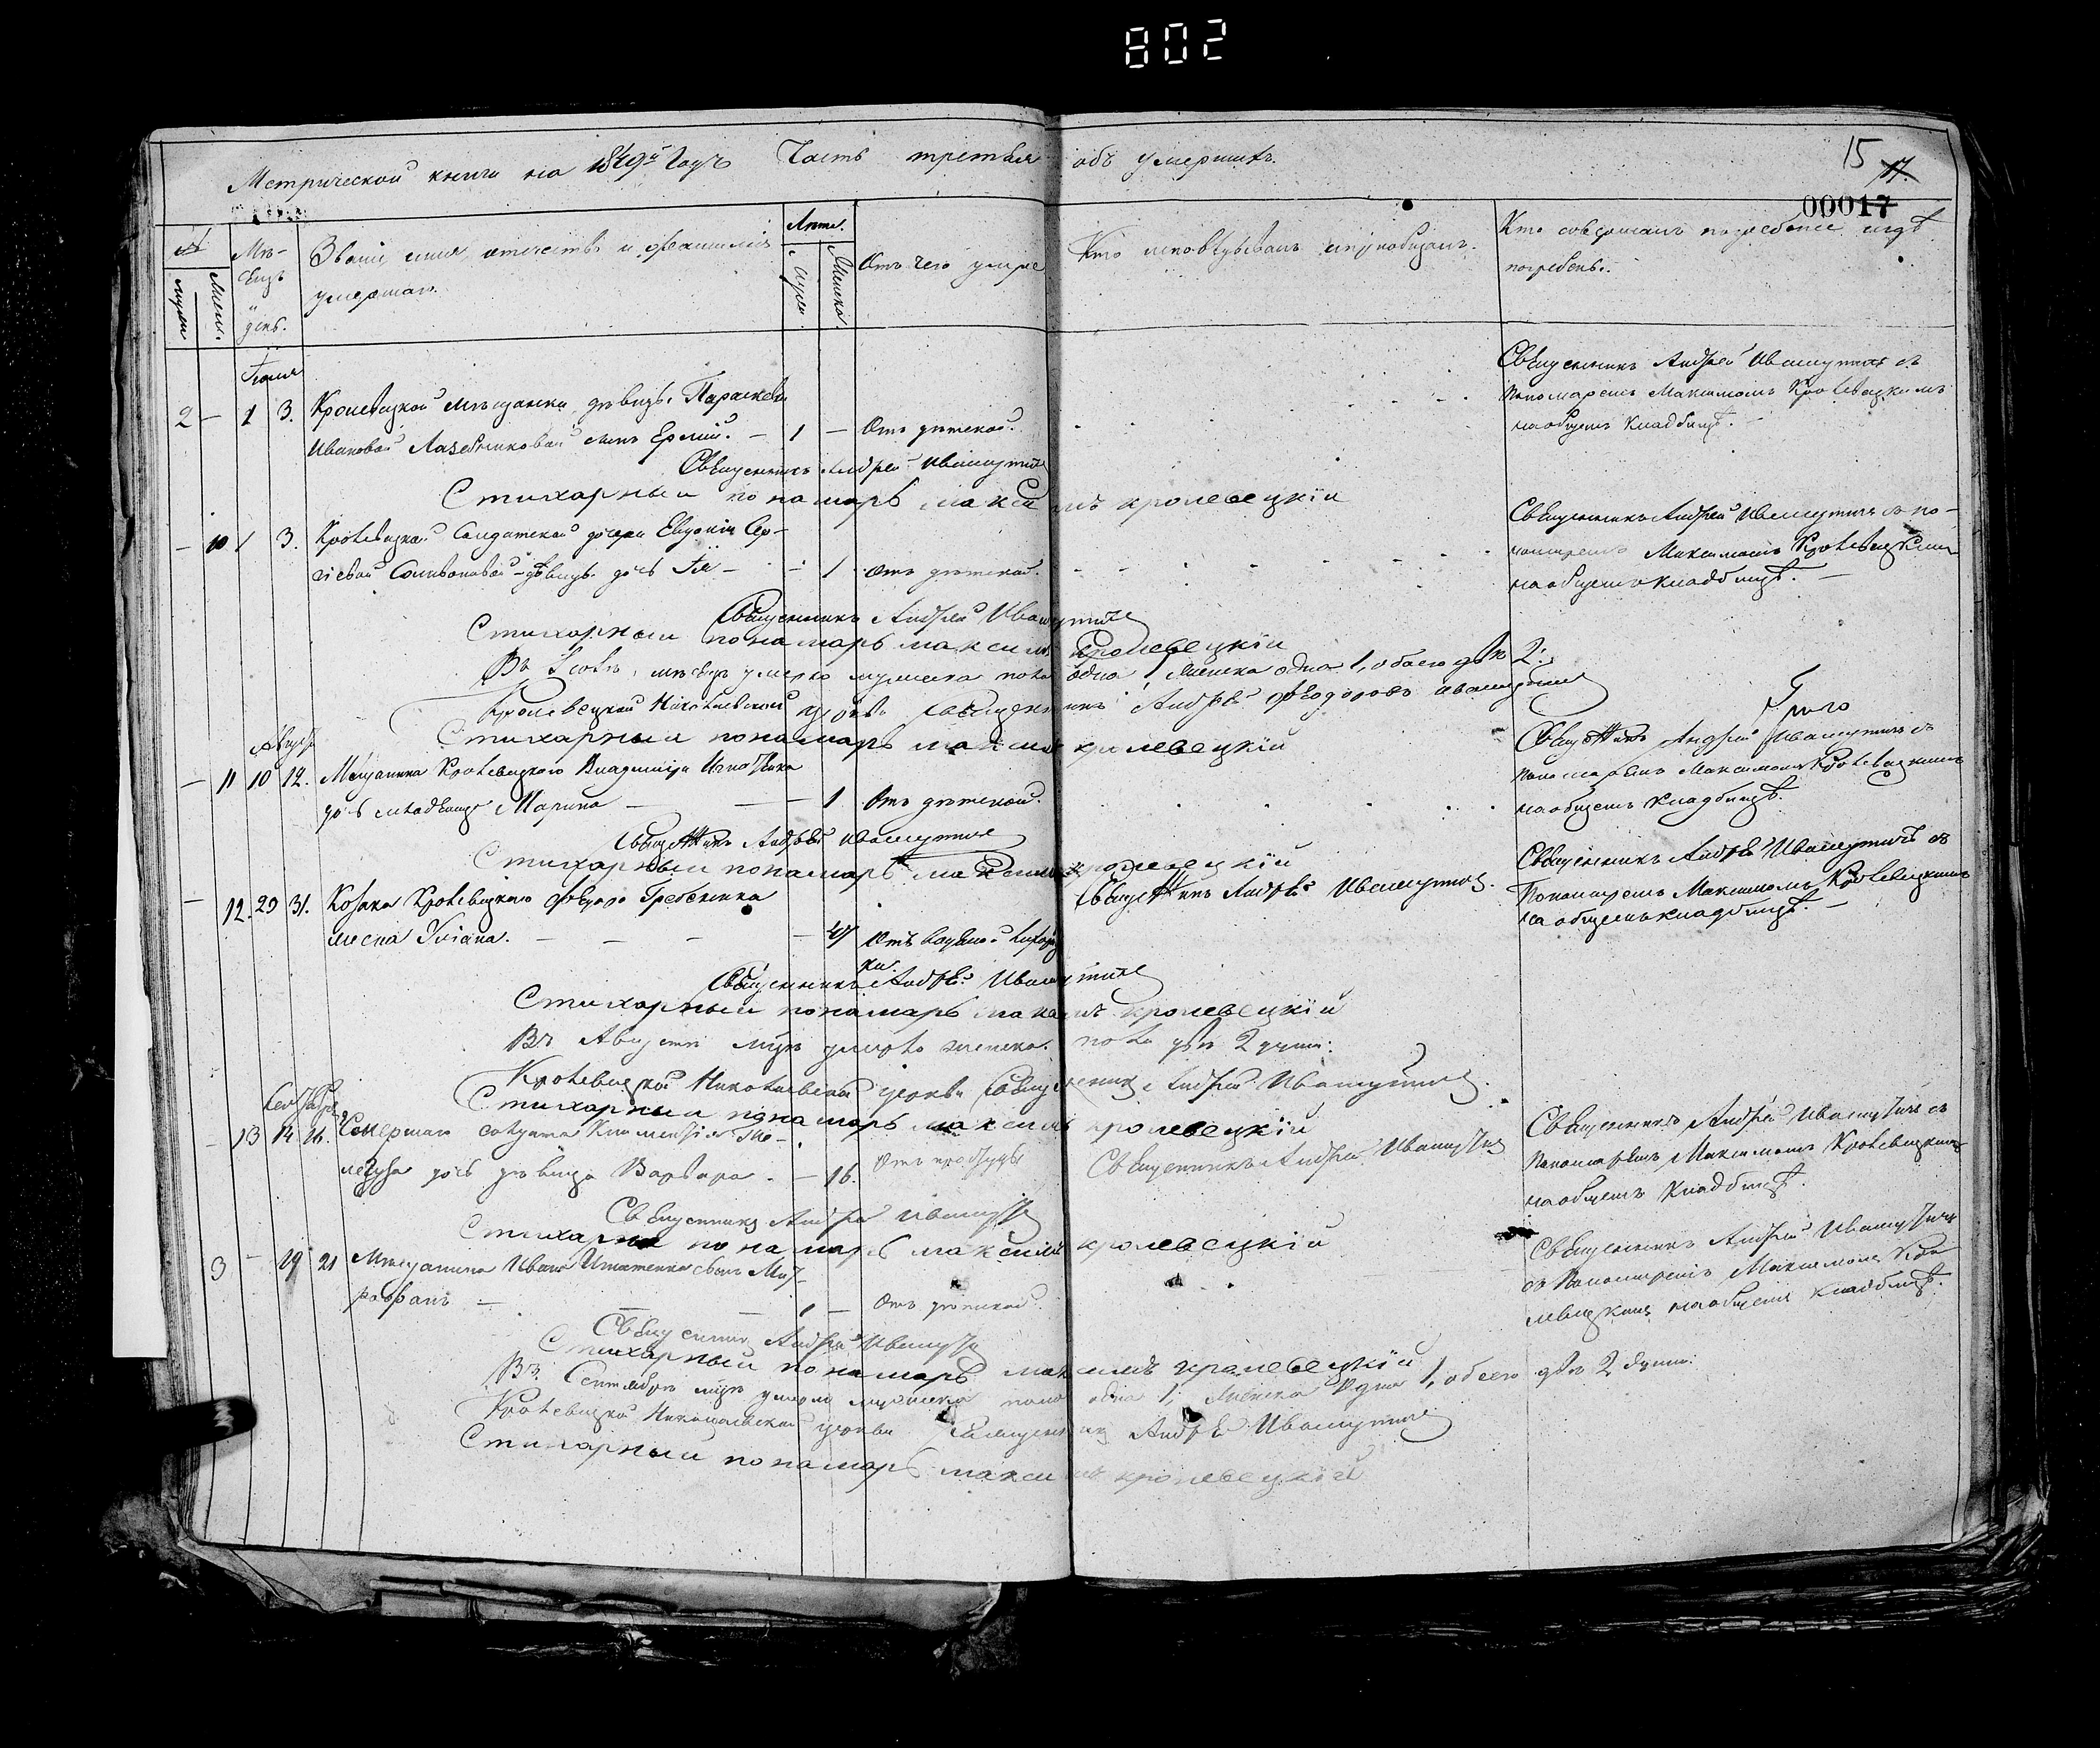 802
Метрической книги на 1849й Годъ Часть третья объ умершихъ.
15 17.
00017
№
мужеск.
женск.
Мѣ-
сяцъ
и
день.
Званіе имя, отчество и фамилія
умершаго.
Лѣта.
Мужеска
Женска
Отъ чего умре
Кто исповѣдывалъ и пріобщалъ.
Кто совершалъ погребеніе и гдѣ
погребенъ.
Іюля
2 — 1 3. Кролевецкой мѣщанки дѣвицы Параскевы
Ивановой Лазебниковой сынъ Ермій. — 1 — Отъ дѣтской.
Священникъ Андрей Ивашутичъ съ
Пономаремъ Максимомъ Кролевецкимъ
на общемъ кладбищѣ. —
Священникъ Андрей Ивашутичъ
Стихарный понамарь максимъ кролевецкій
— 10 1 3. Кролевецкой Солдатской дочери Евдокіи Сер-
гіевой дѣвицы дочь — — 1 Отъ дѣтской.
Священникъ Андрей Ивашутичъ съ по-
номаремъ Максимомъ Кролевецкимъ
на общемъ кладбищѣ. —
Священникъ Андрей Ивашутичъ
Стихарный понамарь максимъ кролевецкій
Въ Іюлѣ мѣсяцѣ умерло мужеска пола одна 1 женска одна 1, обоего двѣ 2.
Кролевецкой Николаевской церкви священникъ Андрей Феодоровъ Ивашутичъ
Стихарный понамарь максимъ кролевецкій
Августа
— 11 10 12. Мещанина Кролевецкого Владимира Игнатенка
дочь младенца Марина — — 1 Отъ дѣтской.
Священникъ Андрей Ивашутичъ съ
Пономаремъ Максимомъ Кролевецкимъ
на общемъ кладбищѣ.
Священникъ Андрей Ивашутичъ
Стихарный понамарь максимъ кролевецкій
— 12. 29 31. Козака Кролевецкого Феодора Гребенника
жена Уліана. — — — 47 Отъ водяной
Священникъ Андрей Ивашутичъ.
Священникъ Андрей Ивашутичъ съ
Пономаремъ Максимомъ Кролевецкимъ
на общемъ кладбищѣ. —
Священникъ Андрей Ивашутичъ
Стихарный понамарь максимъ кролевецкій
Въ Августѣ мцѣ умерло женска пола двѣ 2 души.
Кролевецкой Николаевской церкви Священникъ Андрей Ивашутичъ.
Стихарный понамарь максимъ кролевецкій
Сентября
— 13 14 16. Умершаго солдата Климентія
дочь дѣвица Варвара. — 16. Отъ простуды
Священникъ Андрей Ивашутичъ
Священникъ Андрей Ивашутичъ съ
Пономаремъ Максимомъ Кролевецкимъ
на общемъ кладбищѣ.
Священникъ Андрей Ивашутичъ
Стихарный понамарь максимъ кролевецкій
3 — 19 21 Мещанина Ивана сынъ Мит-
рофанъ — — 1 — Отъ дѣтской.
Священникъ Андрей Ивашутичъ
съ Пономаремъ Максимомъ Кро-
левецкимъ на общемъ кладбищѣ.
Священникъ Андрей Ивашутичъ
Стихарный понамарь максимъ кролевецкій
Въ Сентябрѣ мцѣ умерло мужеска пола одна 1, женска одна 1, обоего двѣ 2 души.
Кролевецкой Николаевской церкви священникъ Андрей Ивашутичъ
Стихарный понамарь максимъ кролевецкій